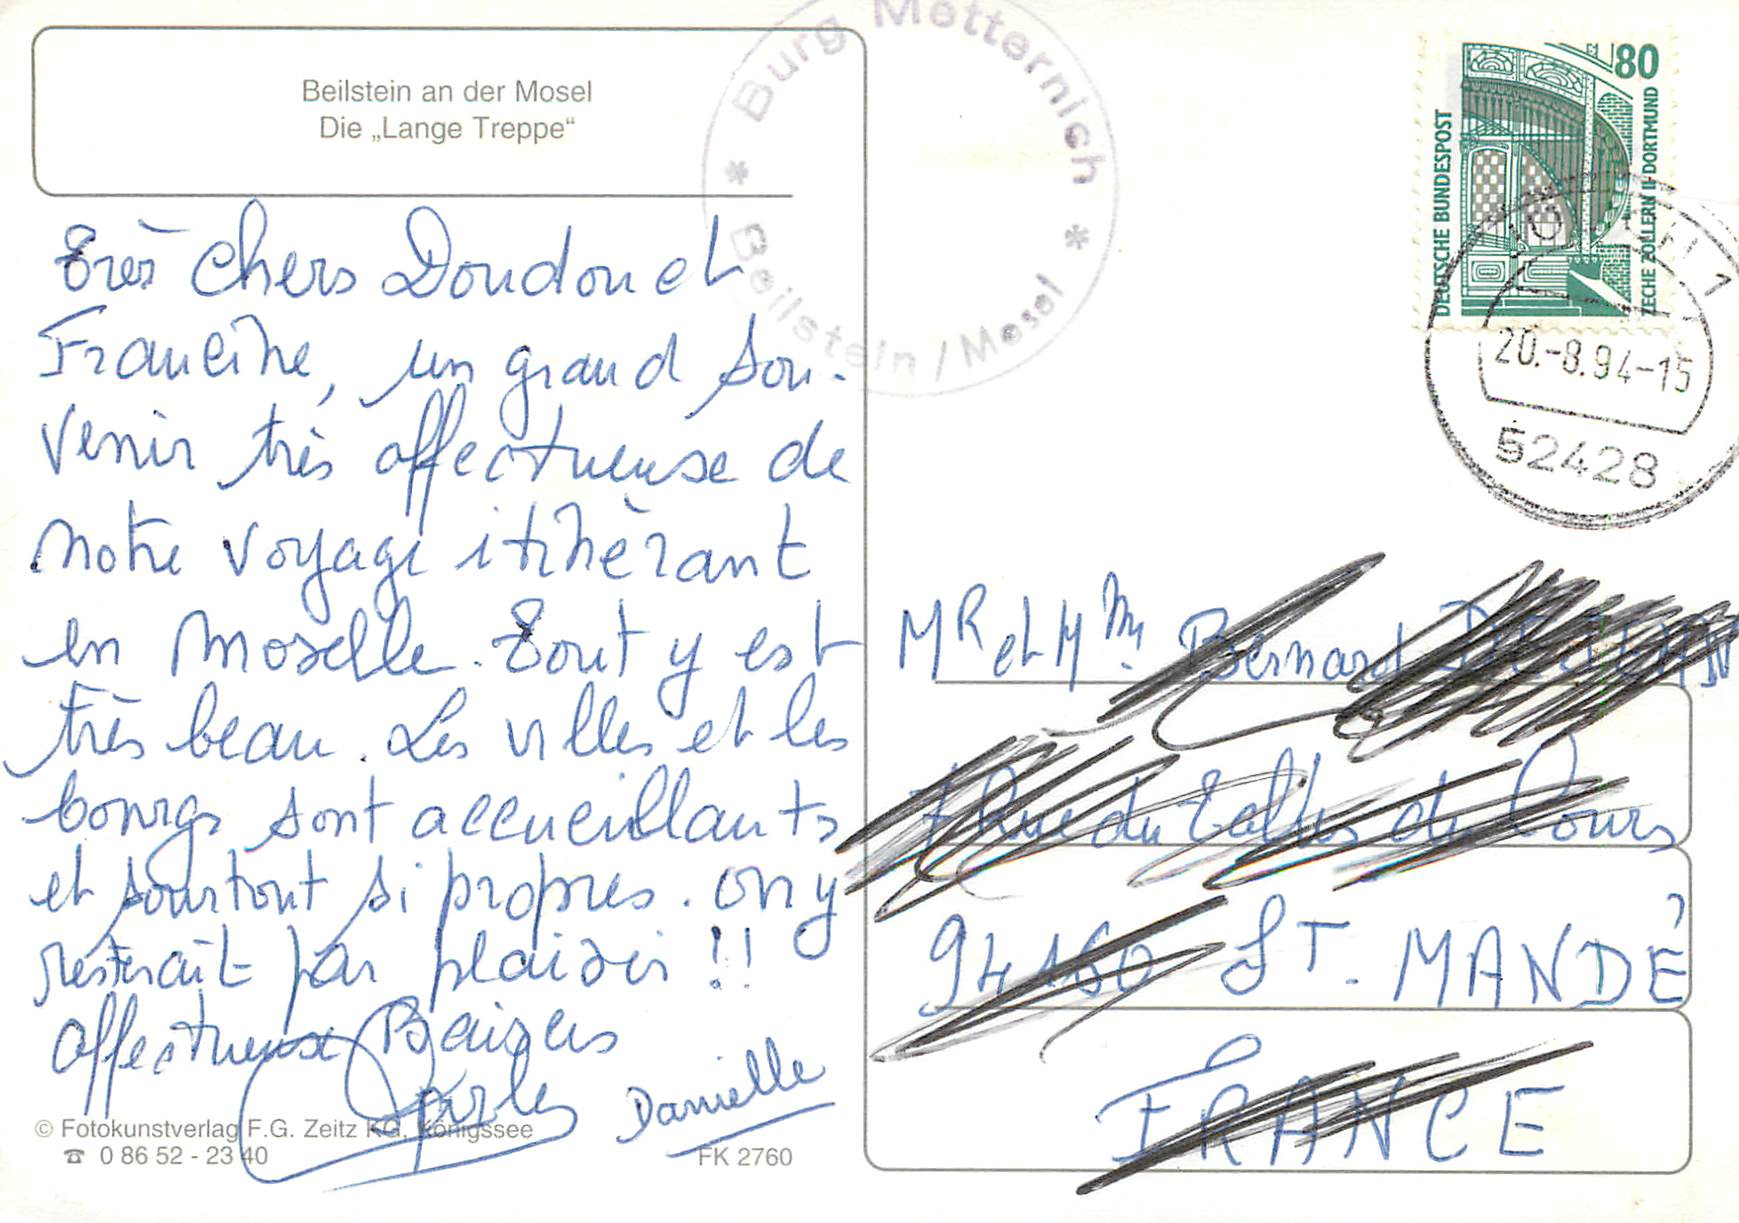 Beilstein an der Mosel
Die „Lange Treppe“
Burg Metternich
* Beilstein / Mosel *
80
DEUTSCHE BUNDESPOST
ZECHE ZOLLERN II·DORTMUND
1
20.-8.94-15
52428
très chers Doudou et
Francine, un grand sou-
venir très affectueuse de
notre voyage itinèrant
en Moselle. Tout y est
très beau. Les villes et les
bourgs sont accueillants
et sourtout si propres. On y
resterait par plaisir !!
affectueux Baisers
Danielle
Mr et Mme Bernard
7 Rue du
94160 ST. MANDÉ
FRANCE
© Fotokunstverlag F.G. Zeitz KG, Königssee
☎ 0 86 52 - 23 40
FK 2760